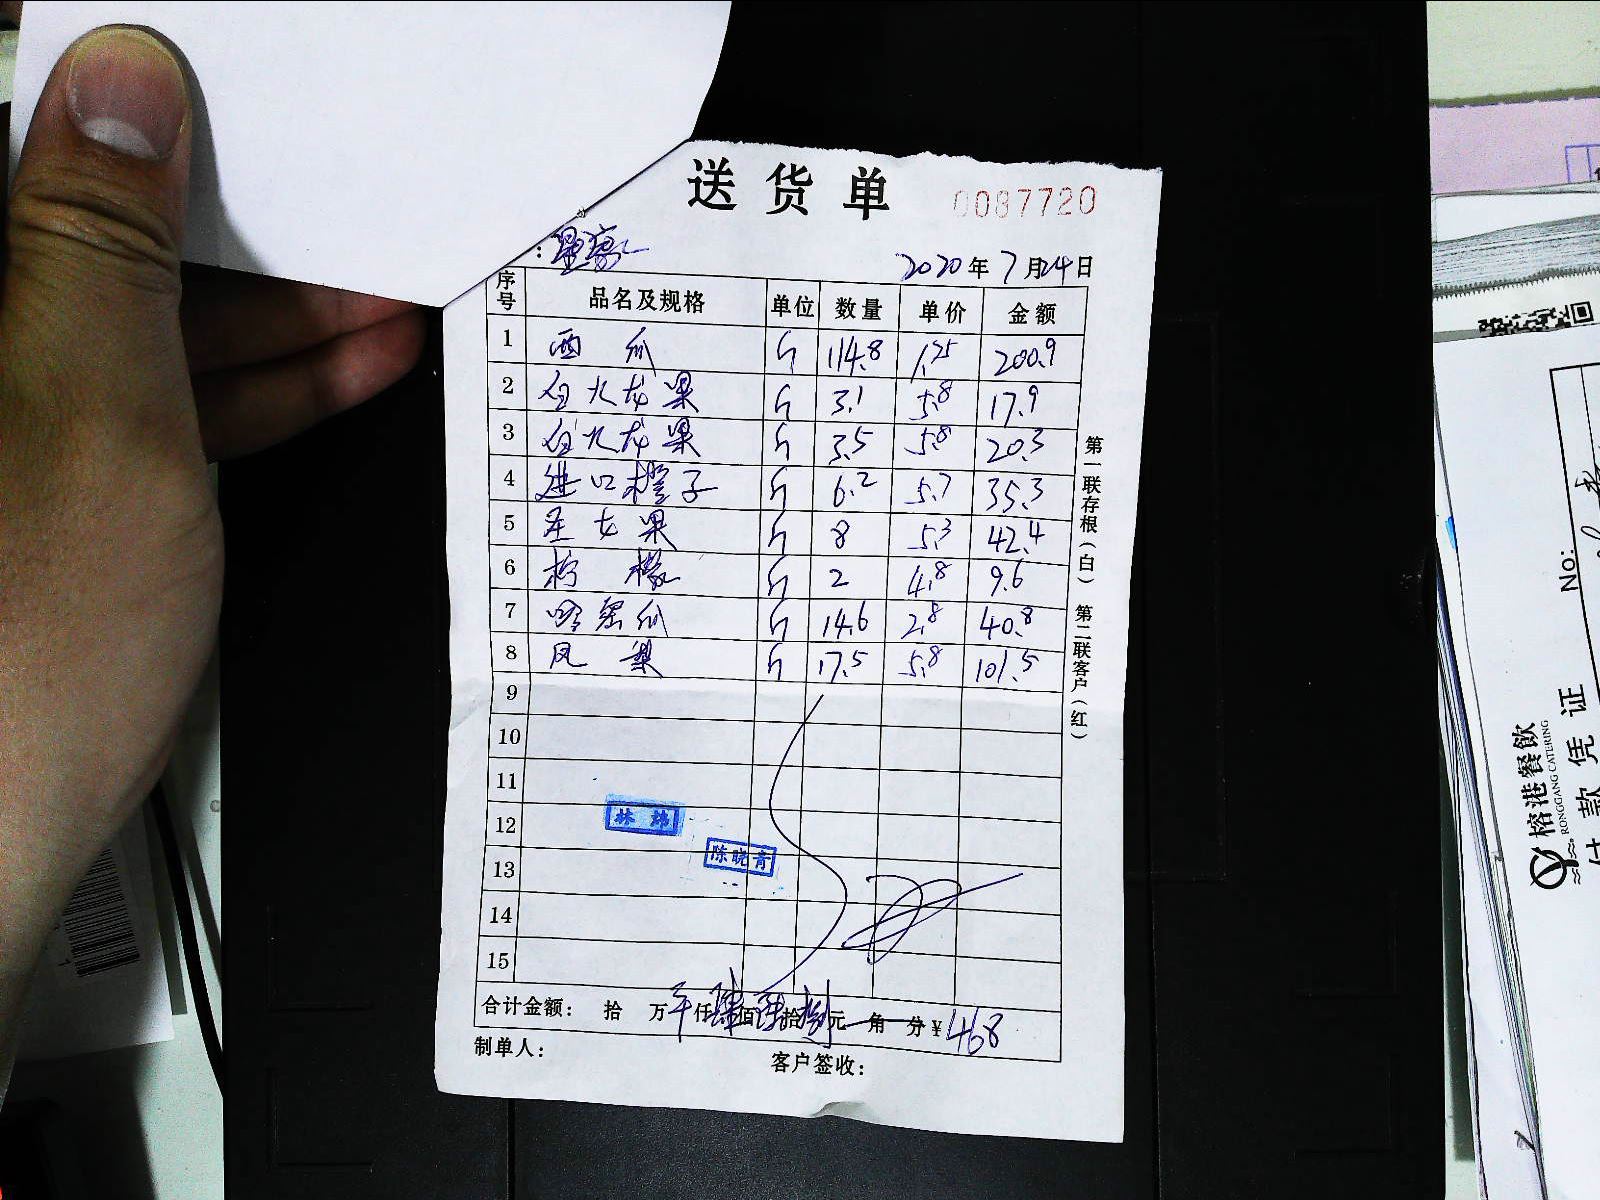 送货单 0087720
2020年7月24日
序号 品名及规格 单位 数量 单价 金额
1 西瓜 斤 114.8 1.75 200.9
2 白火龙果 斤 3.1 5.8 17.9
3 白火龙果 斤 3.5 5.8 20.3
4 进口橙子 斤 6.2 5.7 35.3
5 圣女果 斤 8 5.3 42.4
6 柠檬 斤 2 4.8 9.6
7 哈密瓜 斤 14.6 2.8 40.8
8 凤梨 斤 17.5 5.8 101.5
9
10
11
12
13
14
15
林炜
陈晓青
合计金额: 拾 万 仟肆佰陆拾捌元 角 分¥468
制单人: 客户签收:
第一联存根(白) 第二联客户(红)
No:
榕港餐飲
RONGGANG CATERING
付款凭证